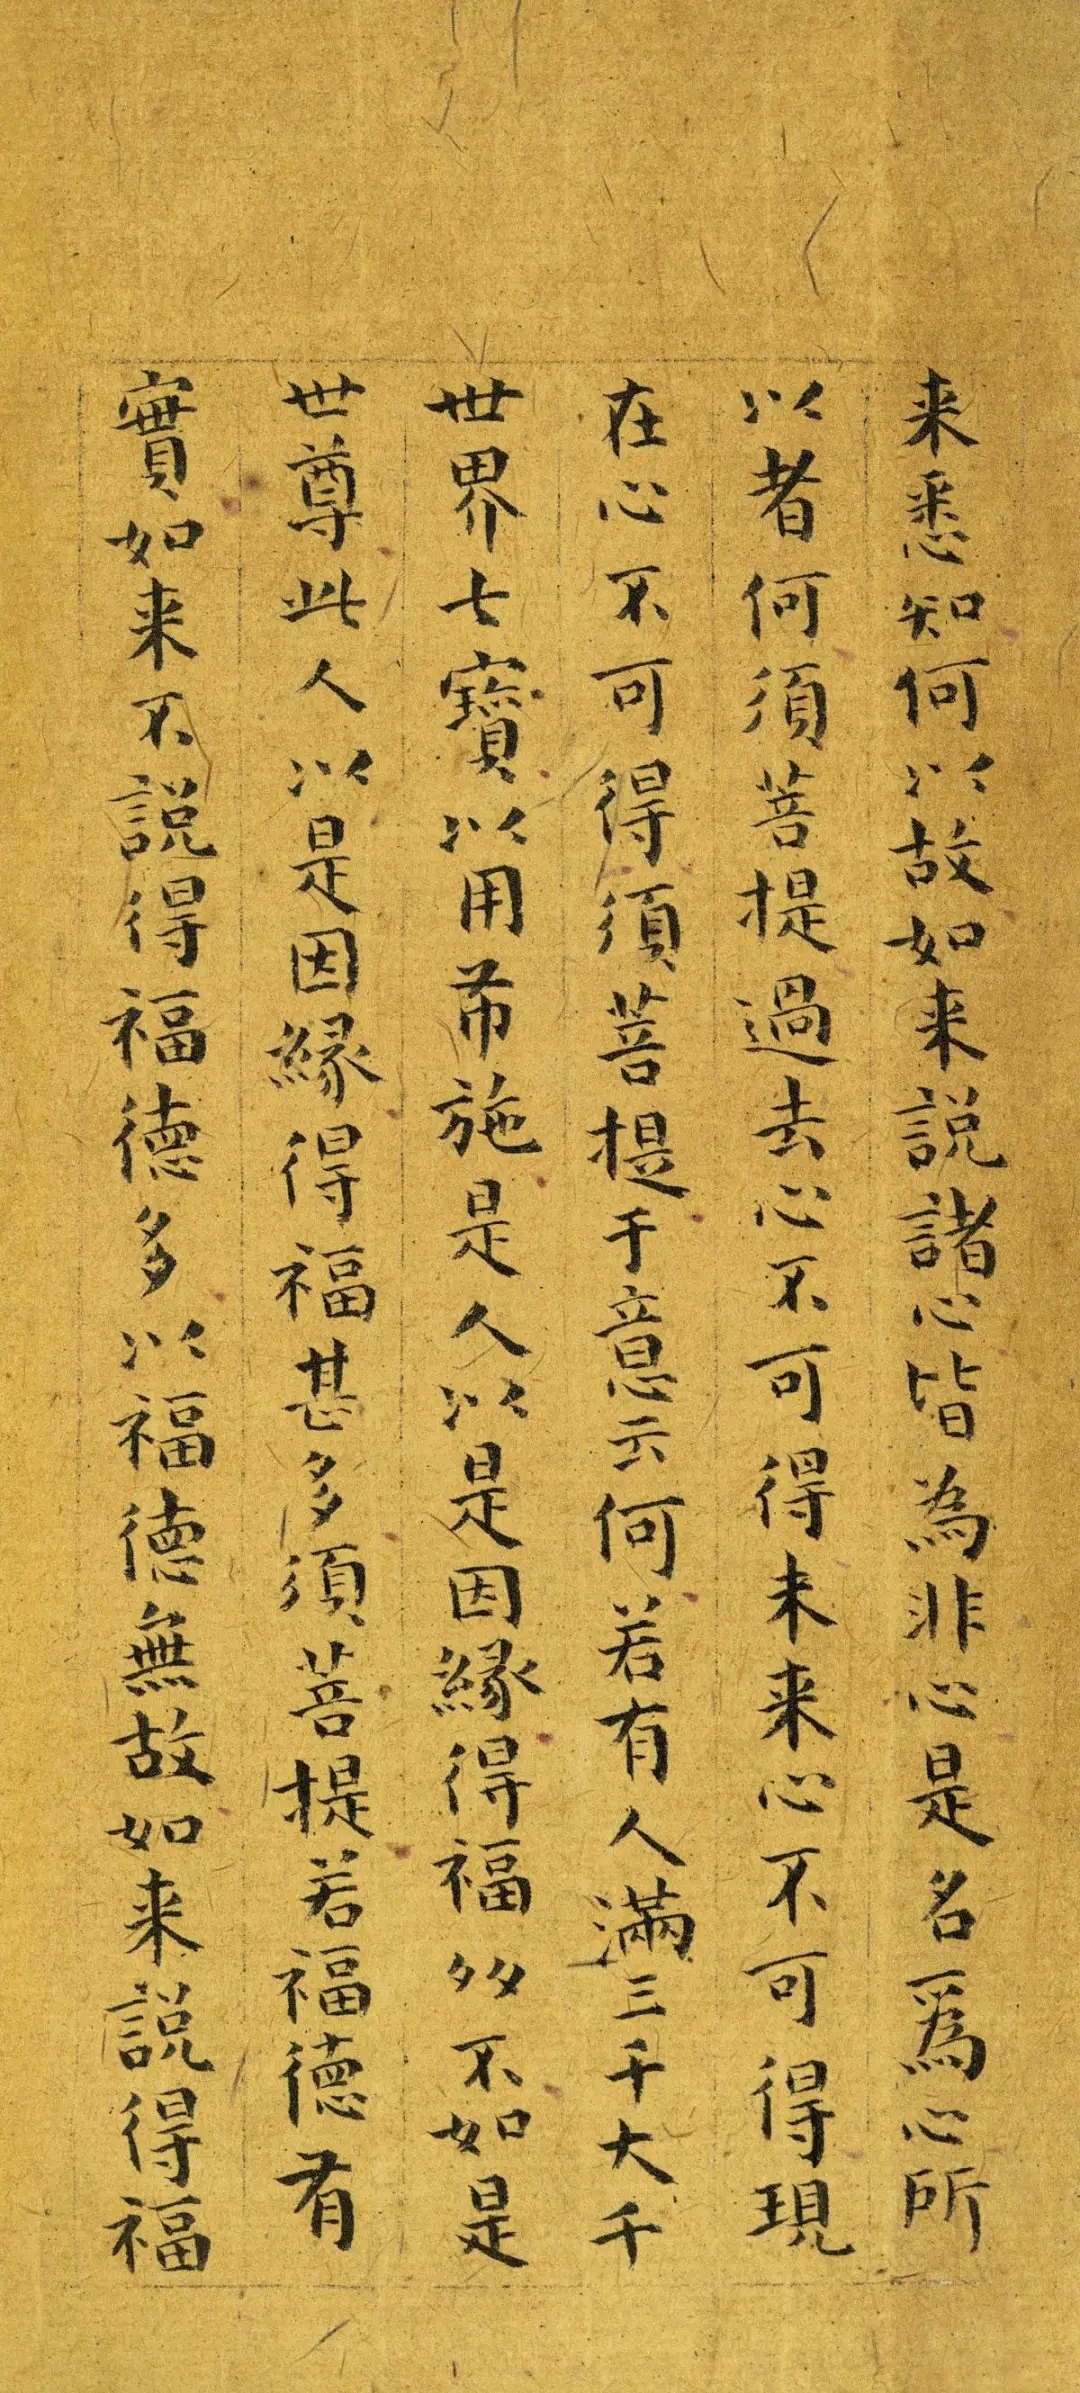 来悉知何以故如来說諸心皆為非心是名爲心所
以者何須菩提過去心不可得未来心不可得現
在心不可得須菩提于意云何若有人滿三千大千
世界七寶以用布施是人以是因緣得福多不如是
世尊此人以是因緣得福甚多須菩提若福德有
實如来不說得福德多以福德無故如来說得福